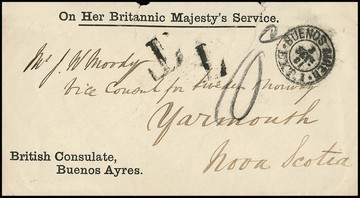 On Her Britannic Majesty's Service.
BUENOS AIRES
Mr J. W. Moody
Vice Consul for Sweden & Norway
10
Yarmouth
Nova Scotia
British Consulate,
Buenos Ayres.